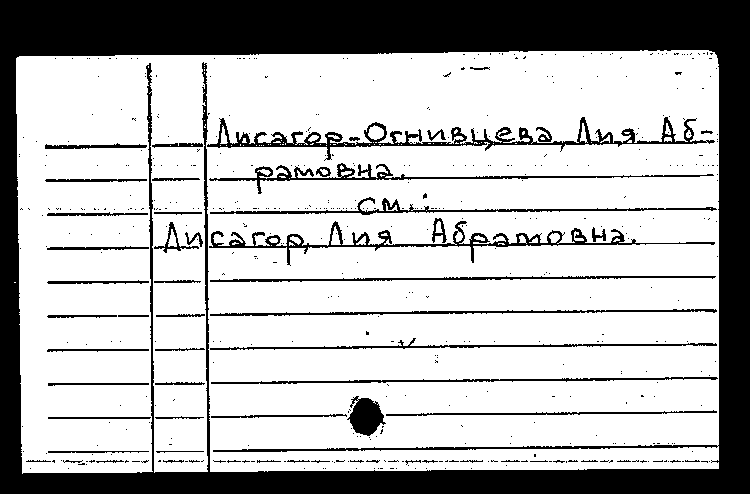 Лисагор-Огнивцева, Лия Аб-
рамовна.
см.:
Лисагор, Лия Абрамовна.